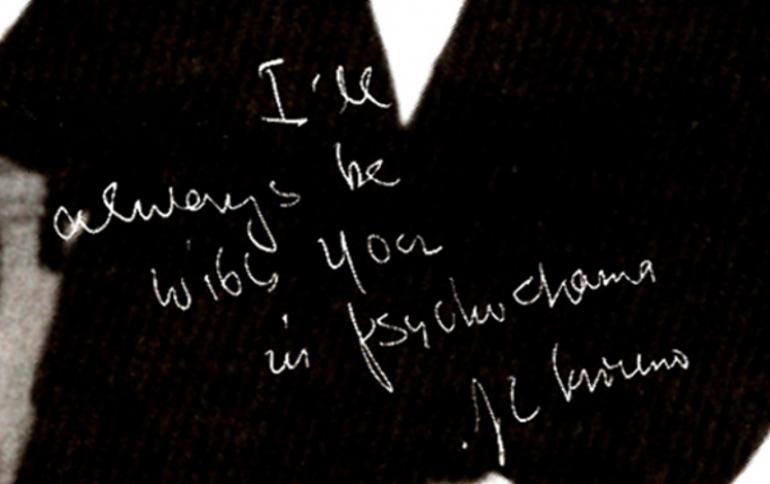 I'll
always be
with you
in psychodrama
JL Moreno